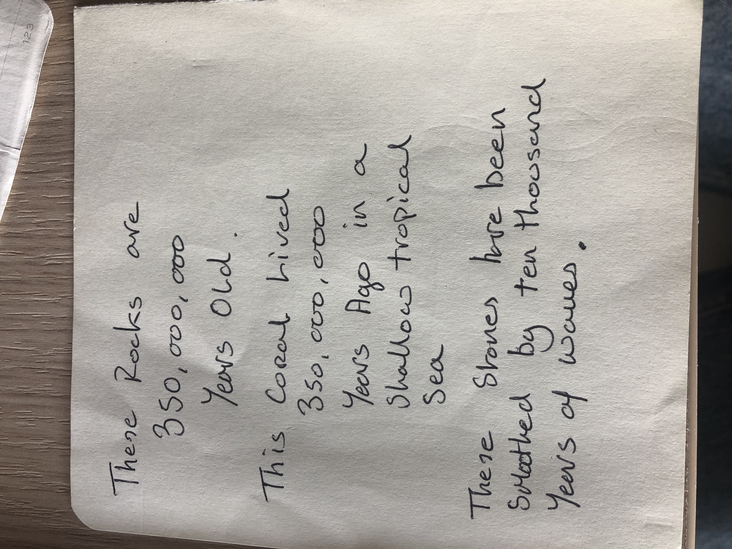 These Rocks are
350,000,000
Years Old.
This Coral Lived
350,000,000
Years Ago in a
Shallow tropical
Sea
These Stones have been
Smoothed by ten thousand
Years of waves.
123